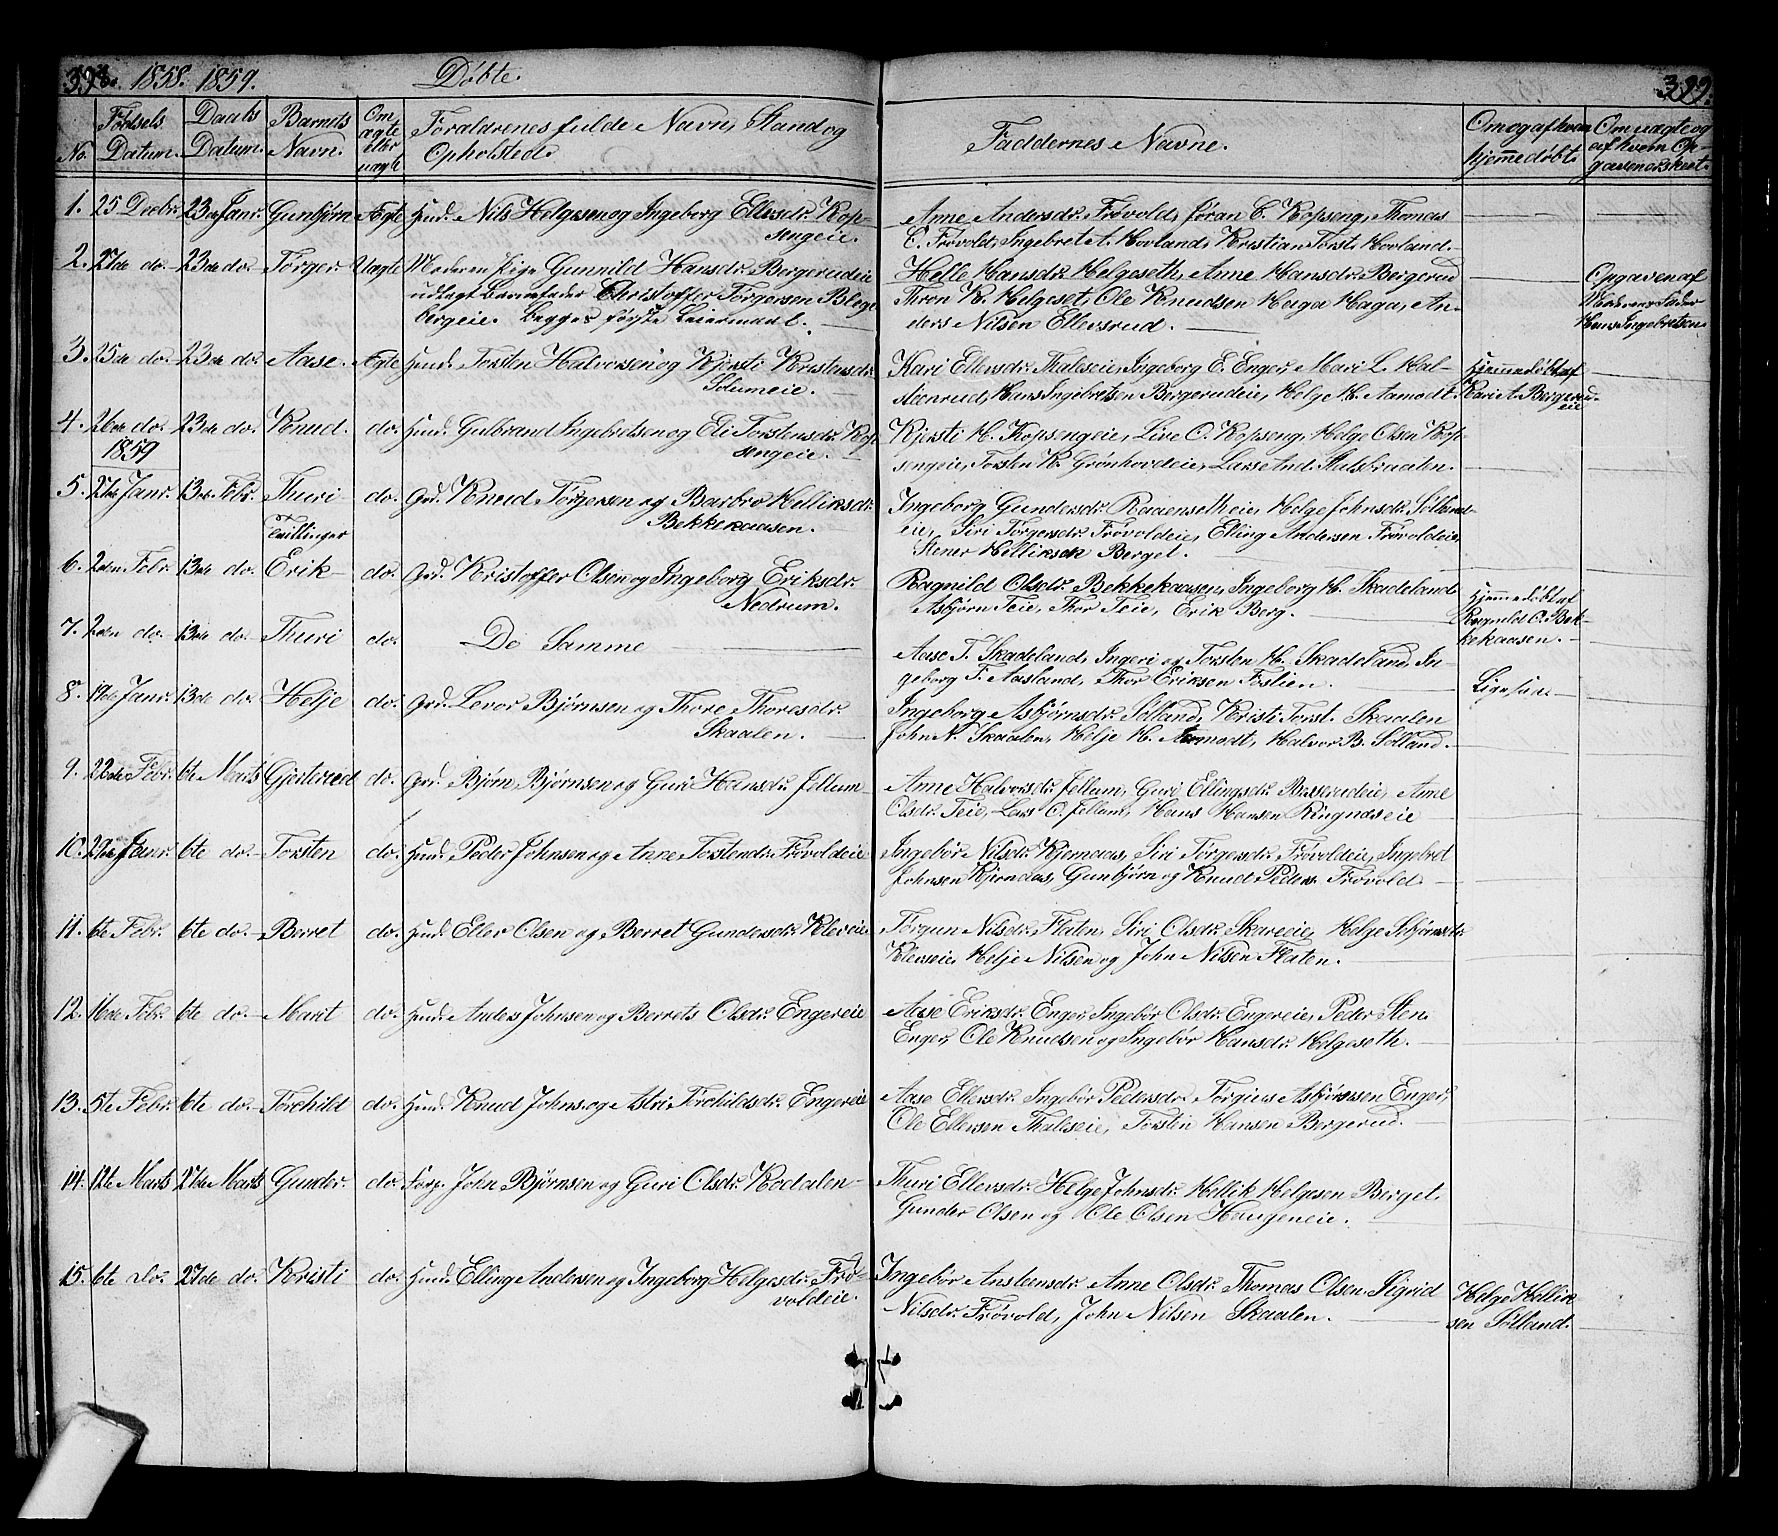 398. 1858. 1859. Døbte. 399.
No. Fødsels Datum. Daabs Datum. Barnets Navn. Om ægte eller uægte Forældrenes fulde Navn, Stand og Opholsted. Faddernes Navne. Om og af hvem hjemmedøbt. Om uægte og af hvem Opgaven er skeet.
1. 25 Decbr. 23de Janr. Gunbjørn Ægte Huusm. Nils Helgesen og Ingeborg Ellersdr. Kop-
sengeie.
Anne Andersdr. Frøvold, Jøran C. Kopseng, Thomas
E. Frøvold, Ingebret A. Hovland, Kristian Torst. Hovland.
2. 27de do. 23de do. Tørger. Uægte Moderen Pige Gunnild Hansdr. Bergerudeie
udlagt Barnefader Christoffer Tørgersen Blege-
bergeie. Begges første Leiermaal.
Helle Hansdr. Helgeseth, Anne Hansdr. Bergerud
Thron K. Helgeset, Ole Knudsen Haga Haga, An-
ders Nilsen Ellersrud.
Opgaven af
Moderens Fader
Hans Ingebretsen.
3. 25de do. 23de do. Aase. Ægte Huusm. Torsten Halvorsen og Kjersti Kristensdr.
Solumeie.
Kari Ellersdr. Thaleseie, Ingeborg E. Enger, Mari L. Hal-
steenrud, Hans Ingebretsen Bergerudeie, Helge H. Aamodt.
Hjemmedøbt af
Kari A. Bergerud-
eie
4. 26de do. 23de do. Knud. do. Huusm. Gulbrand Ingebretsen og Eli Torstensdr. Kop-
sengeie.
Kjersti H. Kopsengeie, Live O. Kopseng, Helge Olsen Kop-
sengeie, Torsten K. Grønhovdeie, Lasse And. Halsbraaten.
1859
5. 27de Janr. 13de Febr. Thuri do. Grd. Knud Tørgersen og Barbro Helliksdr.
Bekkekaasen.
Ingeborg Gundersdr. Raaenseth eie, Helge Johnsdr. Sølland-
eie, Siri Tørgersdr. Frøvoldeie, Elling Andersen Frøvoldeie
Stener Helliksen Berget.
Tvillinger
6. 2den Febr. 13de do. Erik do. Grd. Kristoffer Olsen og Ingeborg Eriksdr.
Nedrum.
Ragnild Olsdr. Bekkekaasen, Ingeborg H. Skadeland
Asbjørn Teie, Thor Teie, Erik Berg.
Hjemmedøbt af
Ragnild O. Bek-
kekaasen.
7. 2den do. 13de do. Thuri do. De Samme
Aase T. Skadeland, Ingeri og Torsten H. Skadeland, In-
geborg T. Aasland, Thor Eriksen Foslien.
Ligesaa
8. 12te Janr. 13de do. Helje do. Grd. Levor Bjørnsen og Thore Thoresdr.
Skaalen.
Ingeborg Asbjørnsdr. Sølland, Kristi Torst. Skaalen
John N. Skaalen, Helje H. Aamodt, Halvor B. Sølland.
9. 22de Febr. 6te Marts Gjertrud do. Grd. Bjørn Bjørnsen og Guri Hansdr. Jellum
Anne Halvorsdr. Jellum, Guri Ellingsdr. Basserudeie, Anne
Olsdr. Teie, Lars O. Jellum, Hans Hansen Ringnæseie
10. 27de Janr. 6te do. Torsten do. Huusm. Peder Johnsen og Anne Torstensdr. Frøvoldeie
Ingebør Nilsdr. Kjernaas, Siri Tørgersdr. Frøvoldeie, Ingebret
Johnsen Kjernaas, Gunbjørn og Knud Peders. Frøvold.
11. 6te Febr. 6te do. Berret do. Huusm. Eller Olsen og Berret Gundersdr. Kleveie
Tørgun Nilsdr. Flaten, Siri Olsdr. Skareeie, Helge Asbjørnsdr.
Kleveeie, Helje Nilsen og John Nilsen Flaten.
12. 16de Febr. 6te do. Marit do. Huusm. Anders Johnsen og Berrets Olsdr. Engereie
Aase Eriksdr. Enger, Ingebør Olsdr. Engereie, Peder Sten.
Enger, Ole Knudsen og Ingebør Hansdr. Helgeseth.
13. 5te Febr. 6te do. Torchild do. Huusm. Knud Johns. og Astri Torchildsdr. Engereie
Aase Ellersdr. Ingebør Pedersdr. Tørgius Asbjørnsen Enger,
Ole Ellersen Thaleseie, Torsten Hansen Bergerud.
14. 12te Marts 27de Marts Gunder. do. Forp. John Bjørnsen og Guri Olsdr. Kodalen
Thuri Ellersdr. Helge Johnsdr. Hellik Helgesen Berget,
Gunder Olsen og Ole Olsen Haugeneie.
15. 6te do. 27de do. Kristi do. Huusm. Elling Andersen og Ingeborg Helgesdr. Frø-
voldeie.
Ingebør Anstensdr. Anne Olsdr. Thomas Olsen Sigrid
Nilsdr. Frøvold, John Nilsen Skaalen.
Helge Hellik-
sen Sølland.